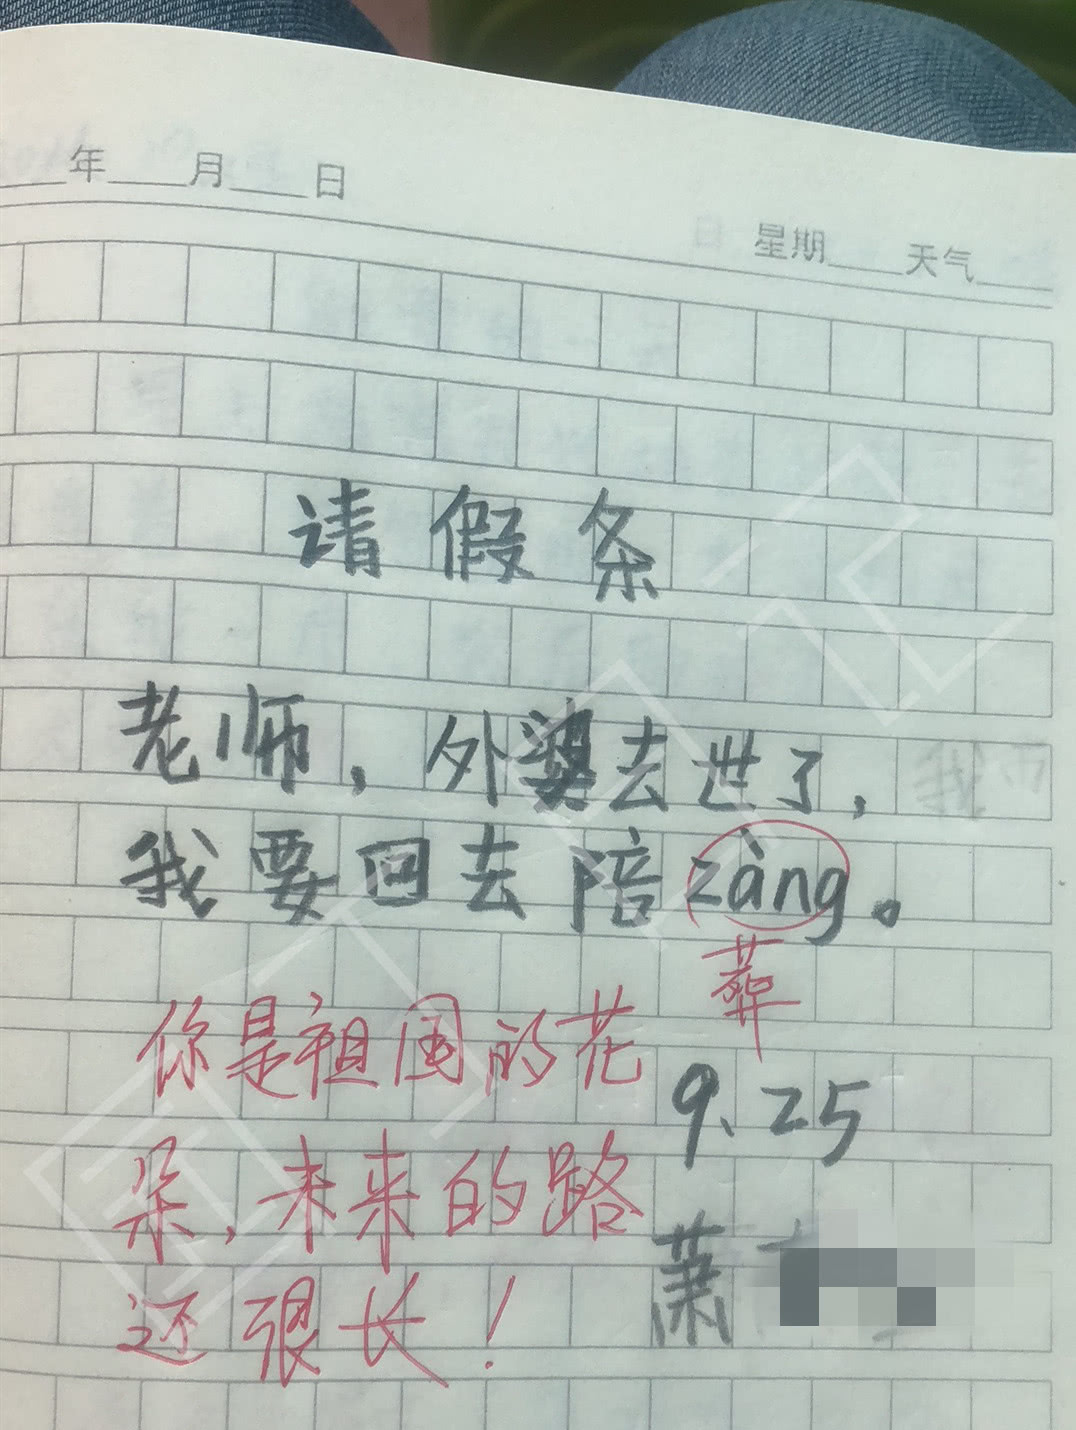 年 月 日
星期 天气
请假条
老师，外婆去世了，
我要回去陪zàng。
葬
你是祖国的花
朵，未来的路
还很长！
9.25
萧